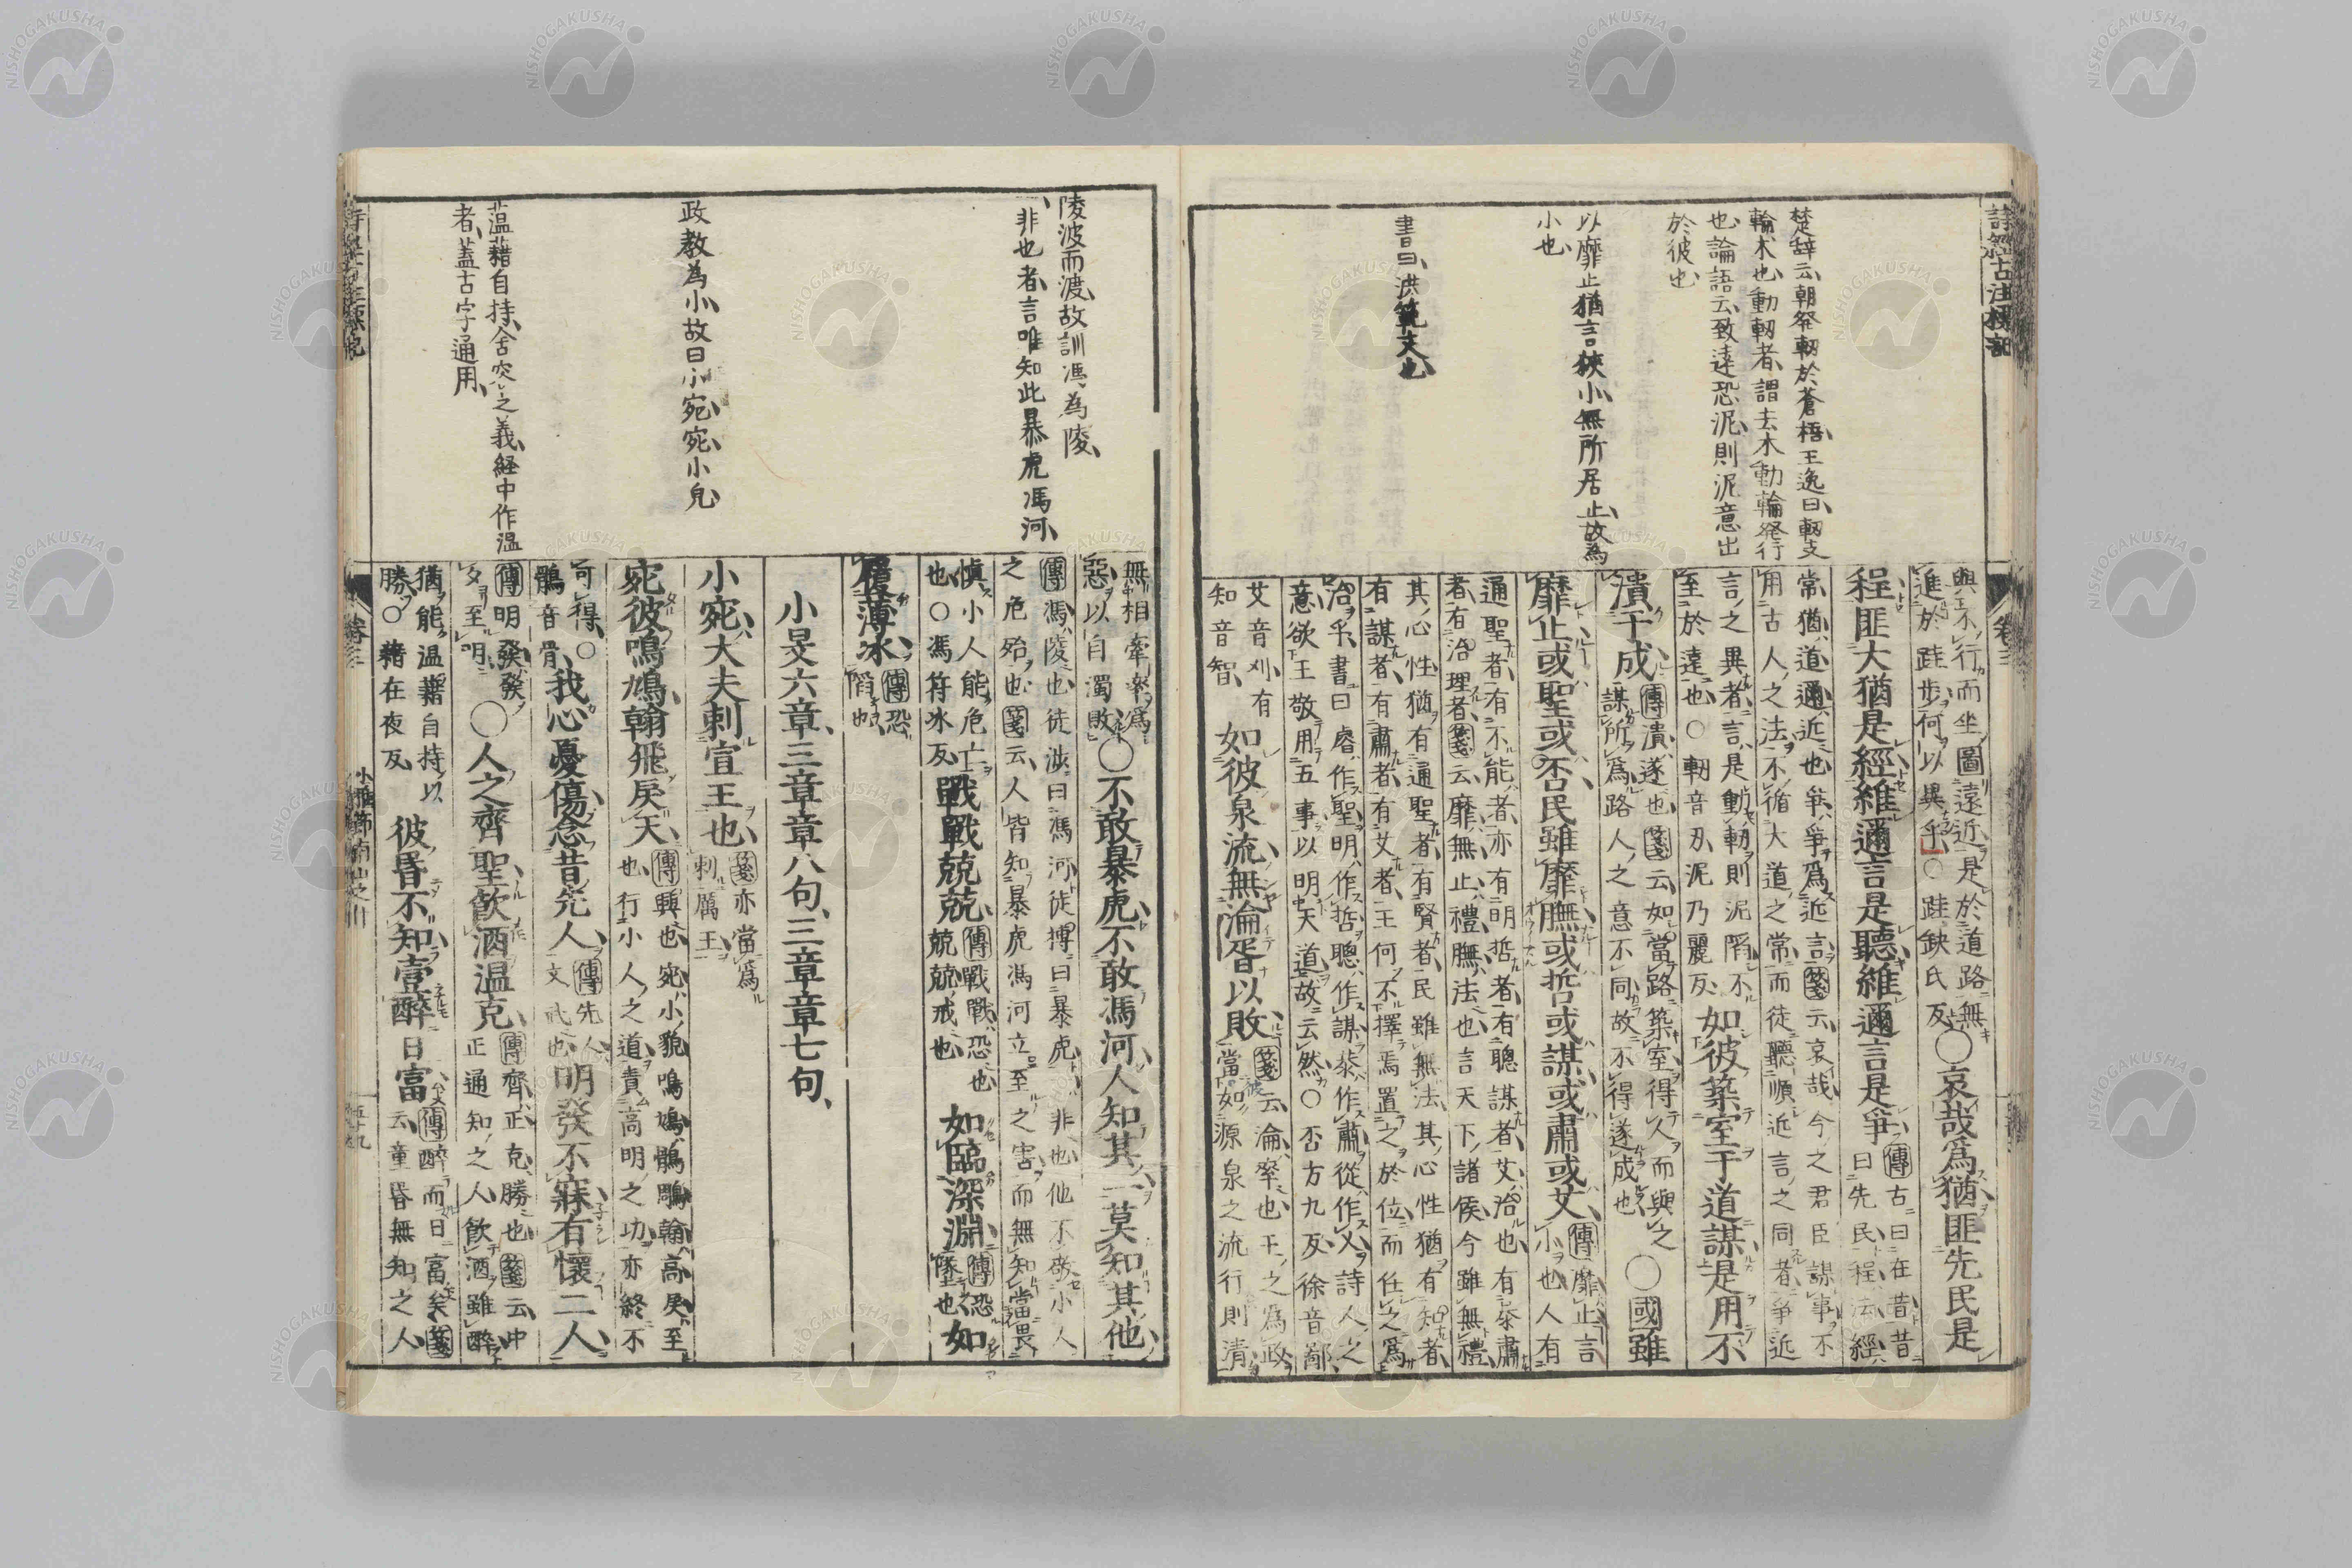 詩経古注標記
楚辞云朝発軔於蒼梧王逸曰軔支
輪木也動軔者謂去木動輪発行
也論語云致遠恐泥則泥意出
於彼也
以靡止猶言狹小無所居止故為
小也
書曰洪範文也
與不行而坐圖遠近是於道路無
進於跬步何以異乎○跬缺氏反
○哀哉爲猶匪先民是
程匪大猶是經維邇言是聽維邇言是爭
傳古曰在昔昔
曰先民程法經
常猶道邇近也爭爭爲近言箋云哀哉今之君臣謀事不
用古人之法不循大道之常而徒聽順近言之同者爭近
言之異者言是動軔則泥陷不
至於遠也○軔音刃泥乃麗反
如彼築室于道謀是用不
潰于成
傳潰遂也箋云如當路築室得人而與之
謀所爲路人之意不同故不得遂成也
○國雖
靡止或聖或否民雖靡膴或哲或謀或肅或艾
傳靡止言
小也人有
通聖者有不能者亦有明哲者有聰謀者艾治也有恭肅
者有治理者箋云靡無止禮膴法也言天下諸侯今雖無禮
其心性猶有通聖者有賢者民雖無法其心性猶有知者
有謀者有肅者有艾者王何不擇焉置之於位而任之爲
治乎書曰睿作聖明作哲聰作謀恭作肅從作乂詩人之
意欲王敬用五事以明天道故云然○否方九反徐音鄙
艾音刈有
知音智
如彼泉流無淪胥以敗
箋云淪率也王之為政
當如源泉之流行則清
卷三
陵波而渡故訓馮為陵
非也者言唯知此暴虎馮河
政教為小故曰小宛宛小皃
薀藉自持含突之義経中作温
者蓋古字通用
無相牽率爲
惡以自濁敗
○不敢暴虎不敢馮河人知其一莫知其他
傳馮陵也徒涉曰馮河徒搏曰暴虎非也他不敬小人
之危殆也箋云人皆知暴虎馮河立至之害而無知當畏
愼小人能危亡
也○馮符冰反
戰戰兢兢
傳戰戰恐也
兢兢戒也
如臨深淵
傳恐
墜也
如
履薄冰
傳恐
陷也
小旻六章三章章八句三章章七句
小宛大夫刺宣王也
箋亦當爲
刺厲王
宛彼鳴鳩翰飛戾天
傳興也宛小貌鳴鳩鶻鵰翰高戾至
也行小人之道責高明之功亦終不
可得○
鶻音骨
我心憂傷念昔先人
傳先人
文武也
明發不寐有懷二人
傳明發發
夕至明
○人之齊聖飮酒温克
傳齊正克勝也箋云中
正通知之人飮酒雖醉
猶能温藉自持以
勝○藉在夜反
彼昬不知壹醉日富
傳醉而日富矣箋
云童昬無知之人
卷三
小雅節南山之
五十九